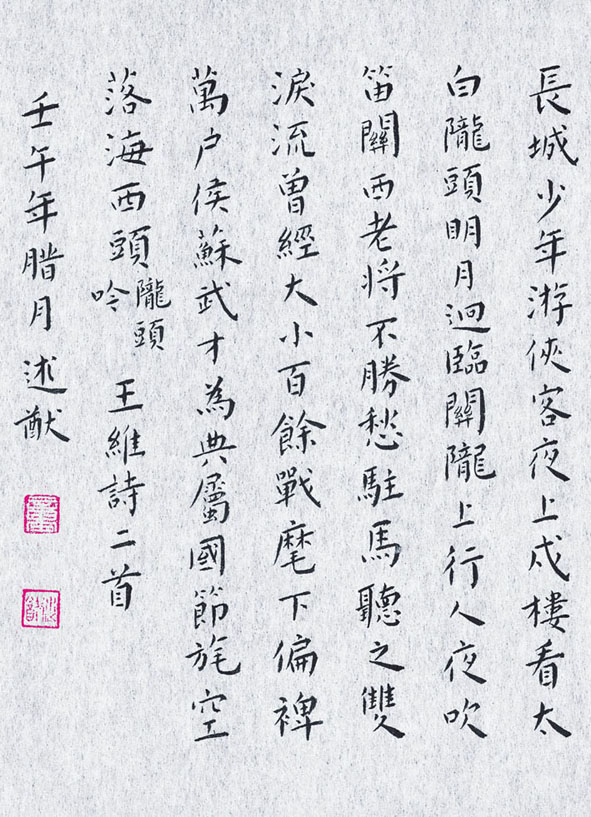 長城少年游俠客夜上戍樓看太
白隴頭明月迥臨關隴上行人夜吹
笛關西老将不勝愁駐馬聽之雙
淚流曾經大小百餘戰麾下偏裨
萬户侯蘇武才為典屬國節旄空
落海西頭隴頭吟王維詩二首
壬午年腊月述猷